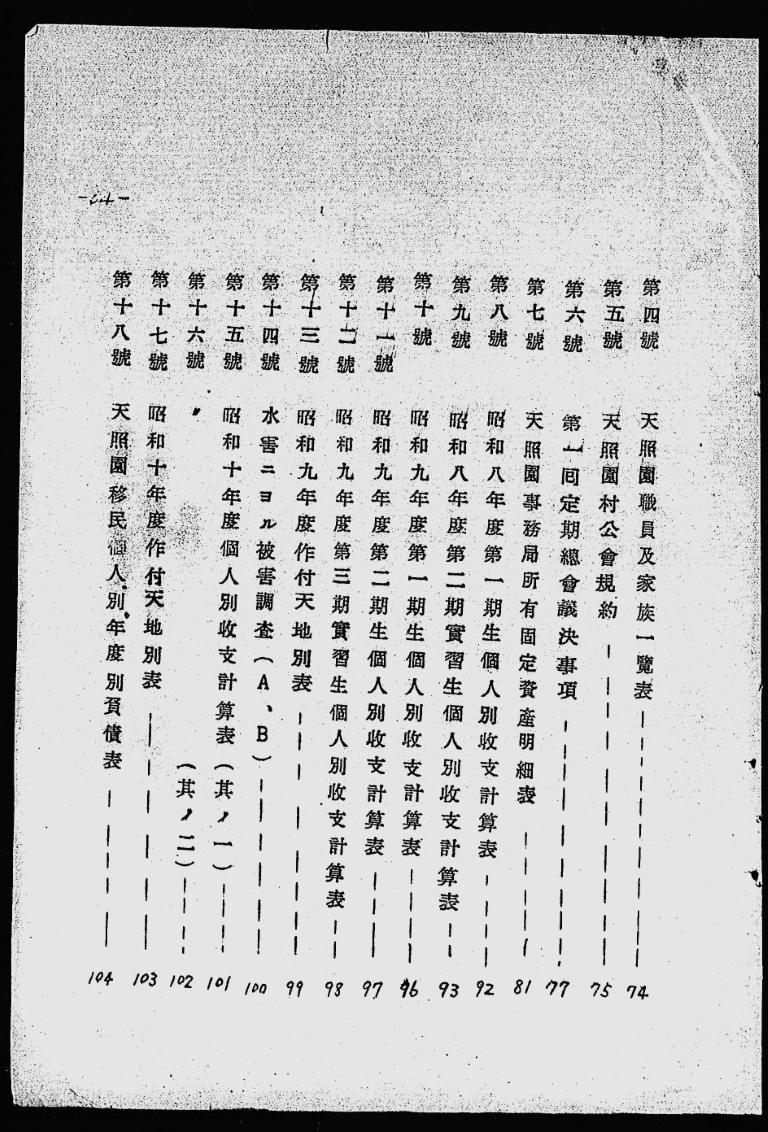 第四號 天照園職員及家族一覽表 74
第五號 天照園村公會規約 75
第六號 第一囘定期總會議決事項 77
第七號 天照園事務局所有固定資產明細表 81
第八號 昭和八年度第一期生個人別收支計算表 92
第九號 昭和八年度第二期實習生個人別收支計算表 93
第十號 昭和九年度第一期生個人別收支計算表 96
第十一號 昭和九年度第二期生個人別收支計算表 97
第十二號 昭和九年度第三期實習生個人別收支計算表 98
第十三號 昭和九年度作付天地別表 99
第十四號 水害ニヨル被害調査(A、B) 100
第十五號 昭和十年度個人別收支計算表(其ノ一) 101
第十六號 〃 (其ノ二) 102
第十七號 昭和十年度作付天地別表 103
第十八號 天照園移民個人別年度別負債表 104